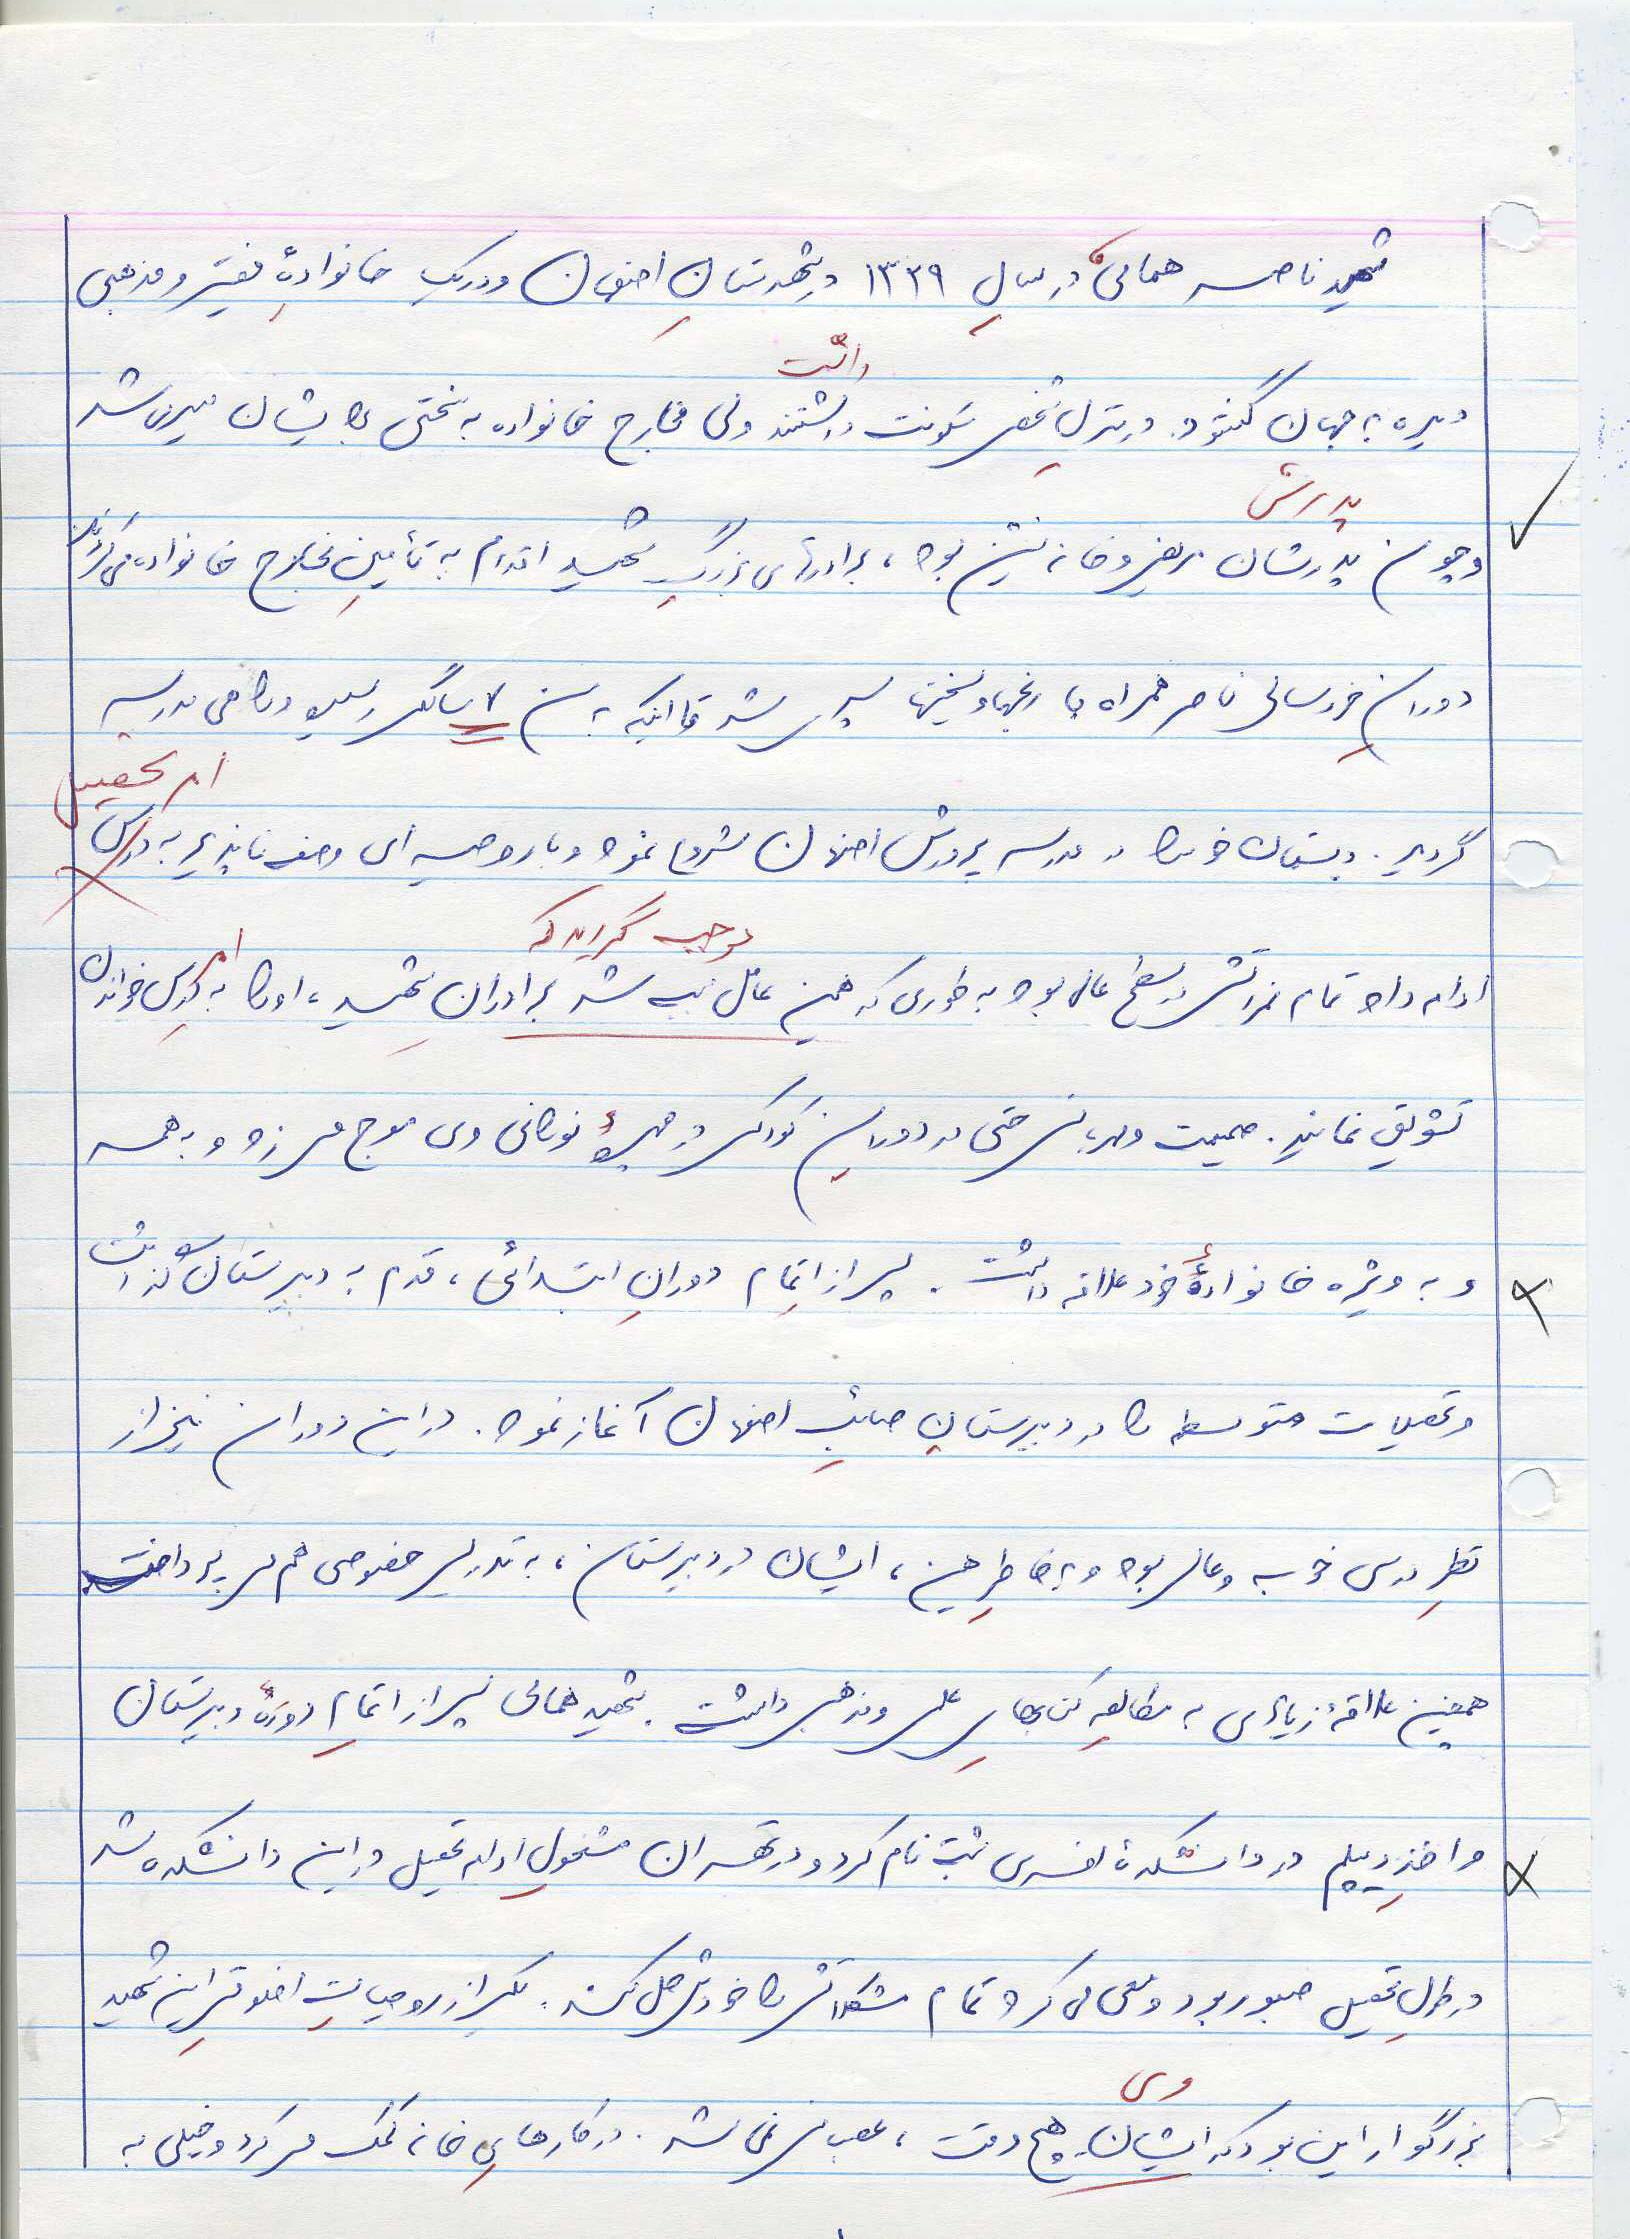 شهید ناصر همائی در سالِ ۱۳۳۹ در شهرستانِ اصفهان و در یک خانوادۀ فقیر و مذهبی
داشت
دیده به جهان گشود. در منزلِ شخصی سکونت داشتند ولی مخارج خانواده به سختی برایشان میسر می‌شد
پدرش
و چون پدرشان مریض و خانه نشین بود، برادرهای بزرگِ شهید اقدام به تأمینِ مخارج خانواده می‌کردند.
دورانِ خردسالی ناصر همراه با رنجها و سختیها سپری شد تا اینکه به سن ۷ سالگی رسید و راهی مدرسه
امر تحصیل
گردید. دبستان خود را در مدرسه پرورش اصفهان شروع نمود و با روحیه‌ای وصف ناپذیر به درس
موجب گردید که
امر
ادامه داد تمام نمراتش در سطح عالی بود به طوری که همین عامل سبب شد برادرانِ شهید، او را به درس خواندن
تشویق نمایند. صمیمیت و مهربانی حتی در دورانِ کودکی در چهرۀ نورانی وی موج می زد و به همه
و به ویژه خانوادۀ خود علاقه داشت. پس از اتمامِ دورانِ ابتدائی، قدم به دبیرستان گذاشت
و تحصیلات متوسطه را در دبیرستانِ صائبِ اصفهان آغاز نمود. در این دوران نیز از
نظرِ درسی خوب و عالی بود و به خاطرِ همین، ایشان در دبیرستان، به تدریس خصوصی هم می پرداخت
همچنین علاقۀ زیادی به مطالعه کتابهایِ علمی و مذهبی داشت. شهید همائی پس از اتمامِ دورۀ دبیرستان
و اخذِ دیپلم در دانشکدۀ افسری ثبت نام کرد و در تهران مشغولِ ادامه تحصیل در این دانشکده شد
در طولِ تحصیل صبور بود و سعی می کرد تمام مشکلاتش را خودش حل کند. یکی از روحیاتِ اخلاقی این شهید
وی
بزرگوار این بود که ایشان هیچ وقت، عصبانی نمی شد. در کارهایِ خانه کمک می کرد و خیلی به